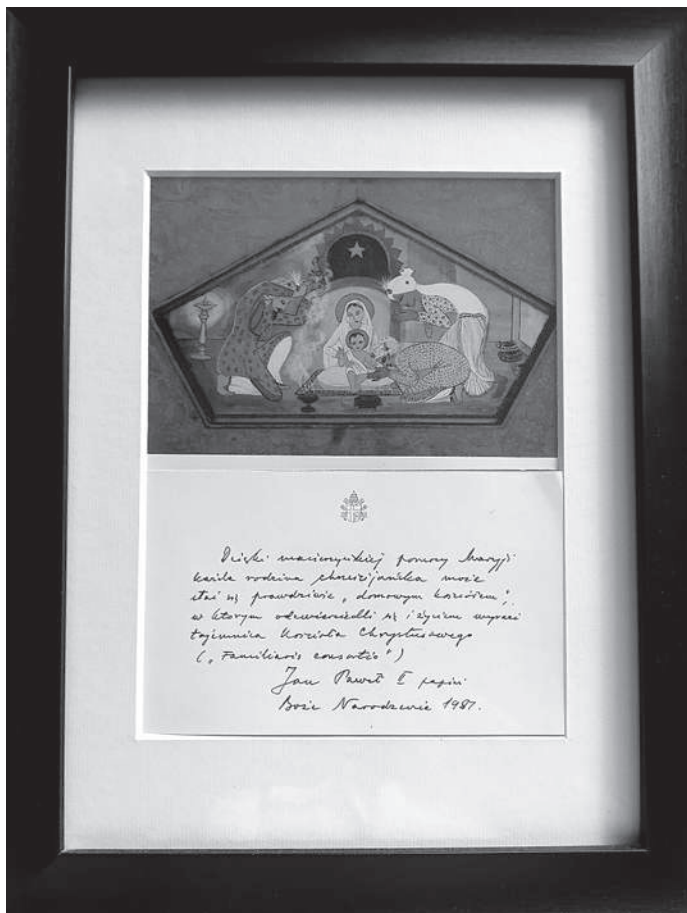 Dzięki macierzyńskiej pomocy Maryji
każda rodzina chrześcijańska może
stać się prawdziwie „domowym kościołem”,
w którym odzwierciedli się i życiem wyrazi
tajemnica Kościoła Chrystusowego
(„Familiaris consortio”)
Jan Paweł II papież
Boże Narodzenie 1981.